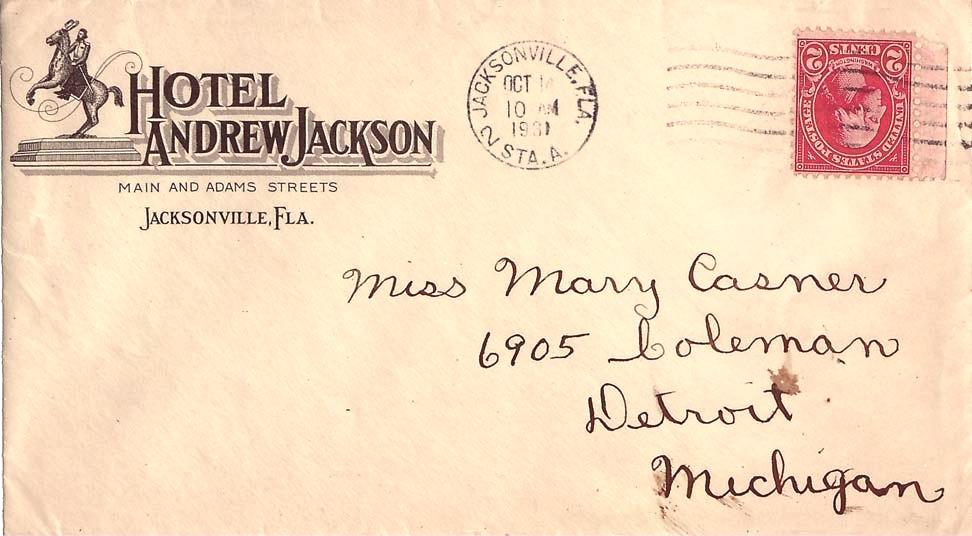 HOTEL
ANDREW JACKSON
MAIN AND ADAMS STREETS
JACKSONVILLE, FLA.
JACKSONVILLE, FLA.
OCT
10 AM
1931
2 STA. A.
UNITED STATES POSTAGE
WASHINGTON
2 CENTS 2
Miss Mary Casner
6905 Coleman
Detroit
Michigan